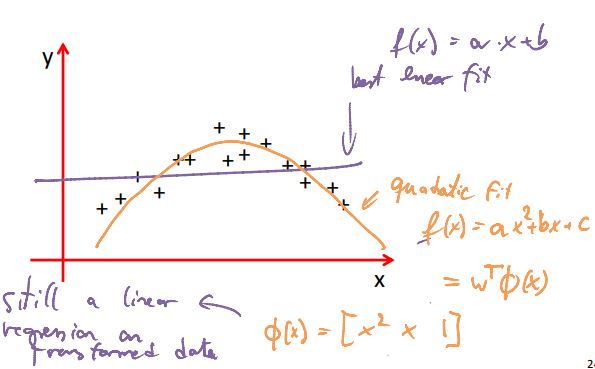 f(x) = a·x+b
best linear fit
y
quadratic fit
f(x) = ax²+bx+c
= wᵀϕ(x)
x
still a linear
regression on
transformed data
ϕ(x) = [x² x 1]